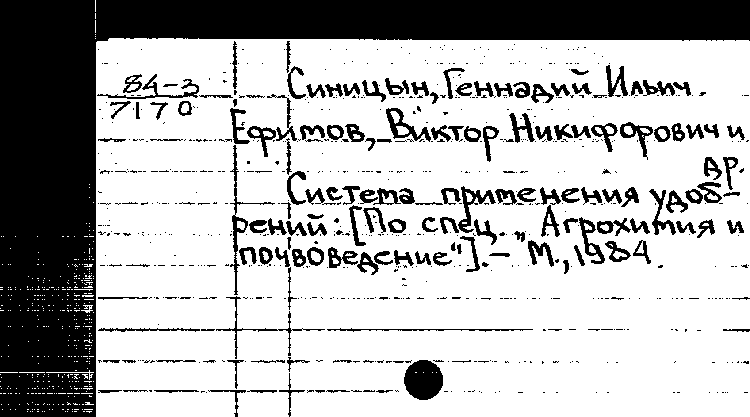 84-3
7170
Синицын, Геннадий Ильич.
Ефимов, Виктор Никифорович и
др.
Система применения удоб-
рений: [По спец. „Агрохимия и
почвоведение"]. – М., 1984.